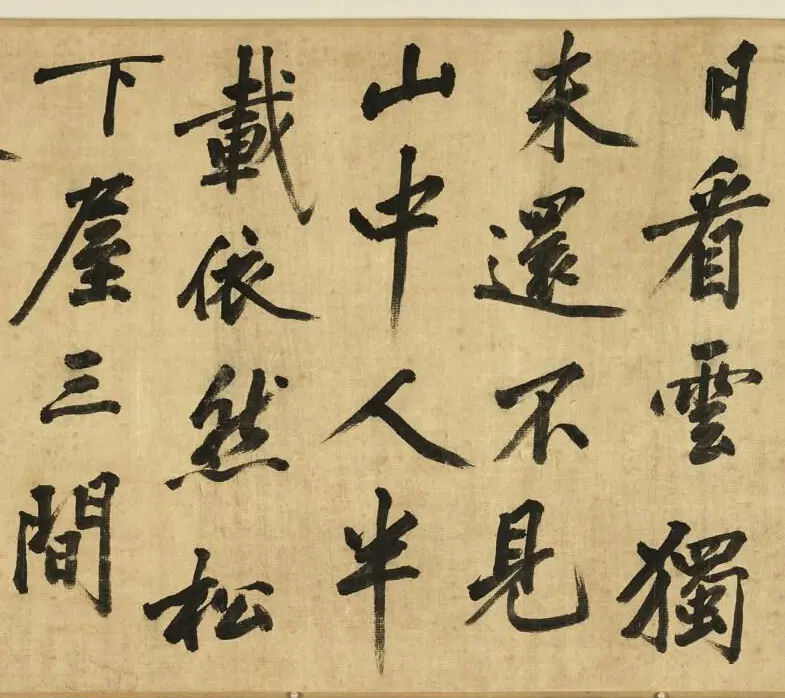 日看雲獨
未還不見
山中人半
載依然松
下屋三間